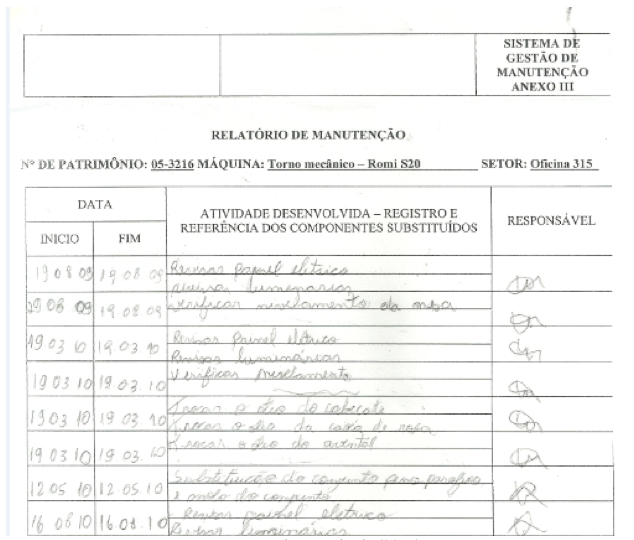 SISTEMA DE
GESTÃO DE
MANUTENÇÃO
ANEXO III
RELATÓRIO DE MANUTENÇÃO
Nº DE PATRIMÔNIO: 05-3216 MÁQUINA: Torno mecânico – Romi S20 SETOR: Oficina 315
DATA
ATIVIDADE DESENVOLVIDA – REGISTRO E
REFERÊNCIA DOS COMPONENTES SUBSTITUÍDOS
RESPONSÁVEL
INICIO FIM
19 08 09 19 08 09 Revisar painel elétrico
revisar luminárias
29 08 09 19 08 09 Verificar nivelamento da mesa
19 03 10 19 03 10 Revisar Painel elétrico
Revisar luminárias
19 03 10 19 03 10 Verificar nivelamento
19 03 10 19 03 10 Trocar o óleo do cabeçote
Trocar o óleo da caixa de rosca
19 03 10 19 03 10 Trocar o óleo do avental
12 05 10 12 05 10 Substituição do conjunto parafuso
e mola do conjunto
16 08 10 16 08 10 Revisar painel elétrico
Revisar luminárias